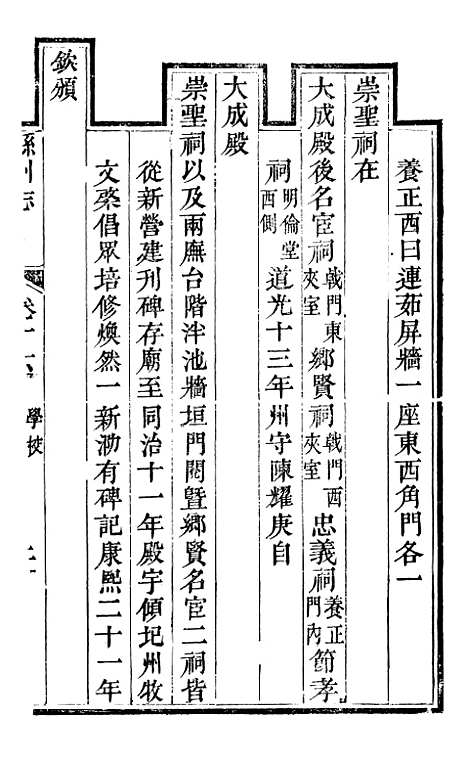 養正西曰連茹屏牆一座東西角門各一
崇聖祠在
大成殿後名宦祠戟門東夾室鄉賢祠戟門西夾室忠義祠養正門內節孝
祠明倫堂西側道光十三年州守陳耀庚自
大成殿
崇聖祠以及兩廡台階泮池牆垣門閣暨鄉賢名宦二祠皆
從新營建刊碑存廟至同治十一年殿宇傾圮州牧
文棨倡眾培修煥然一新泐有碑記康熙二十一年
欽頒
州志
學校